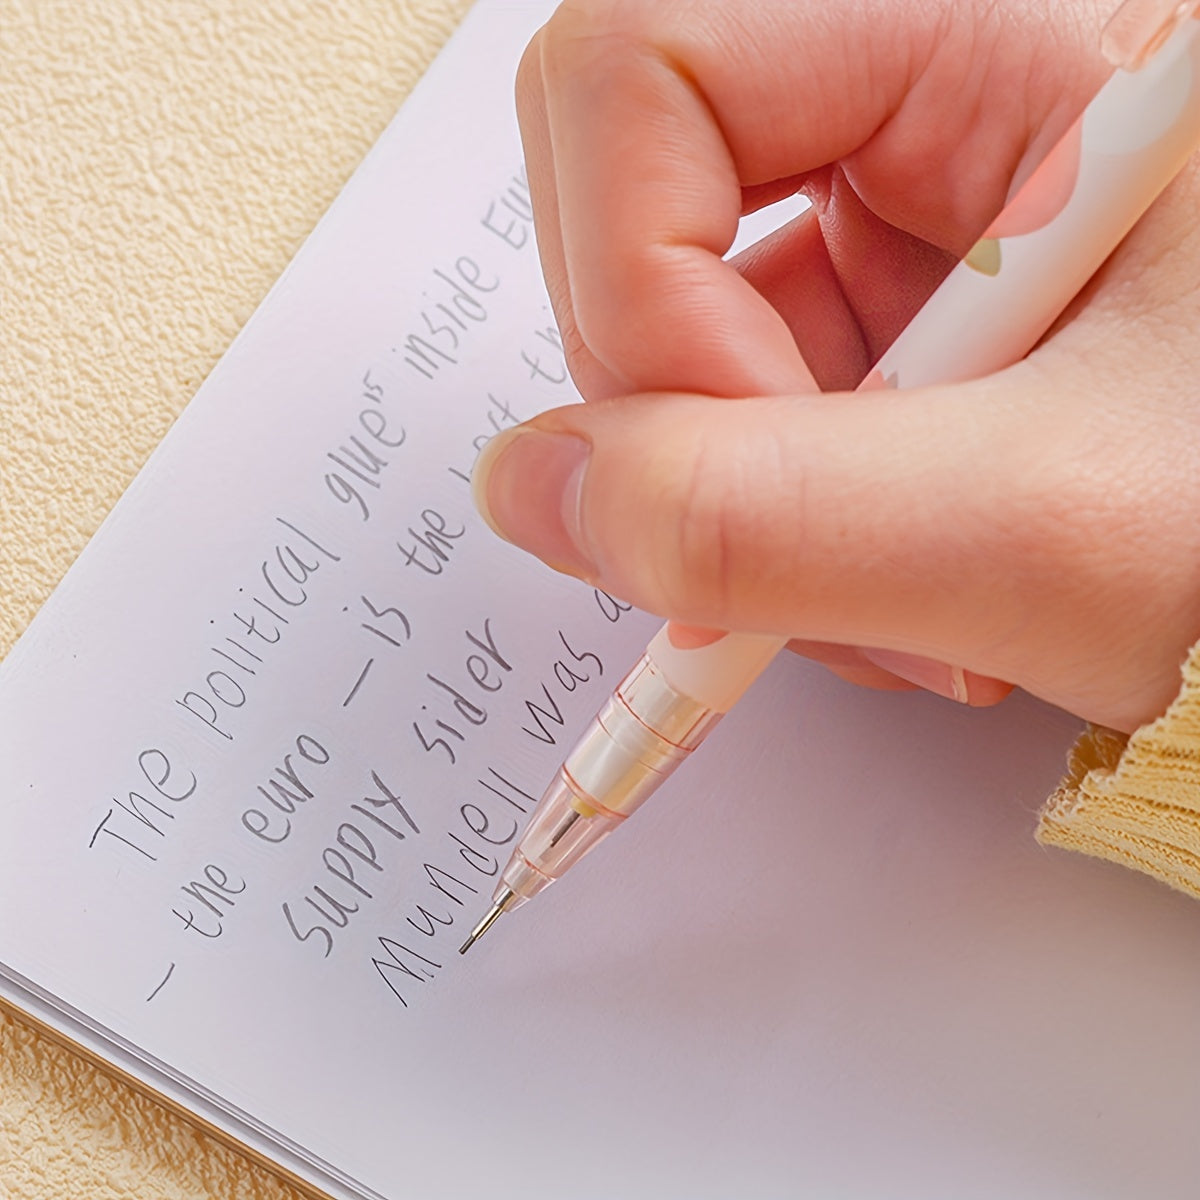 The political glue" is inside
– the euro – is the
supply sider
Mundell was